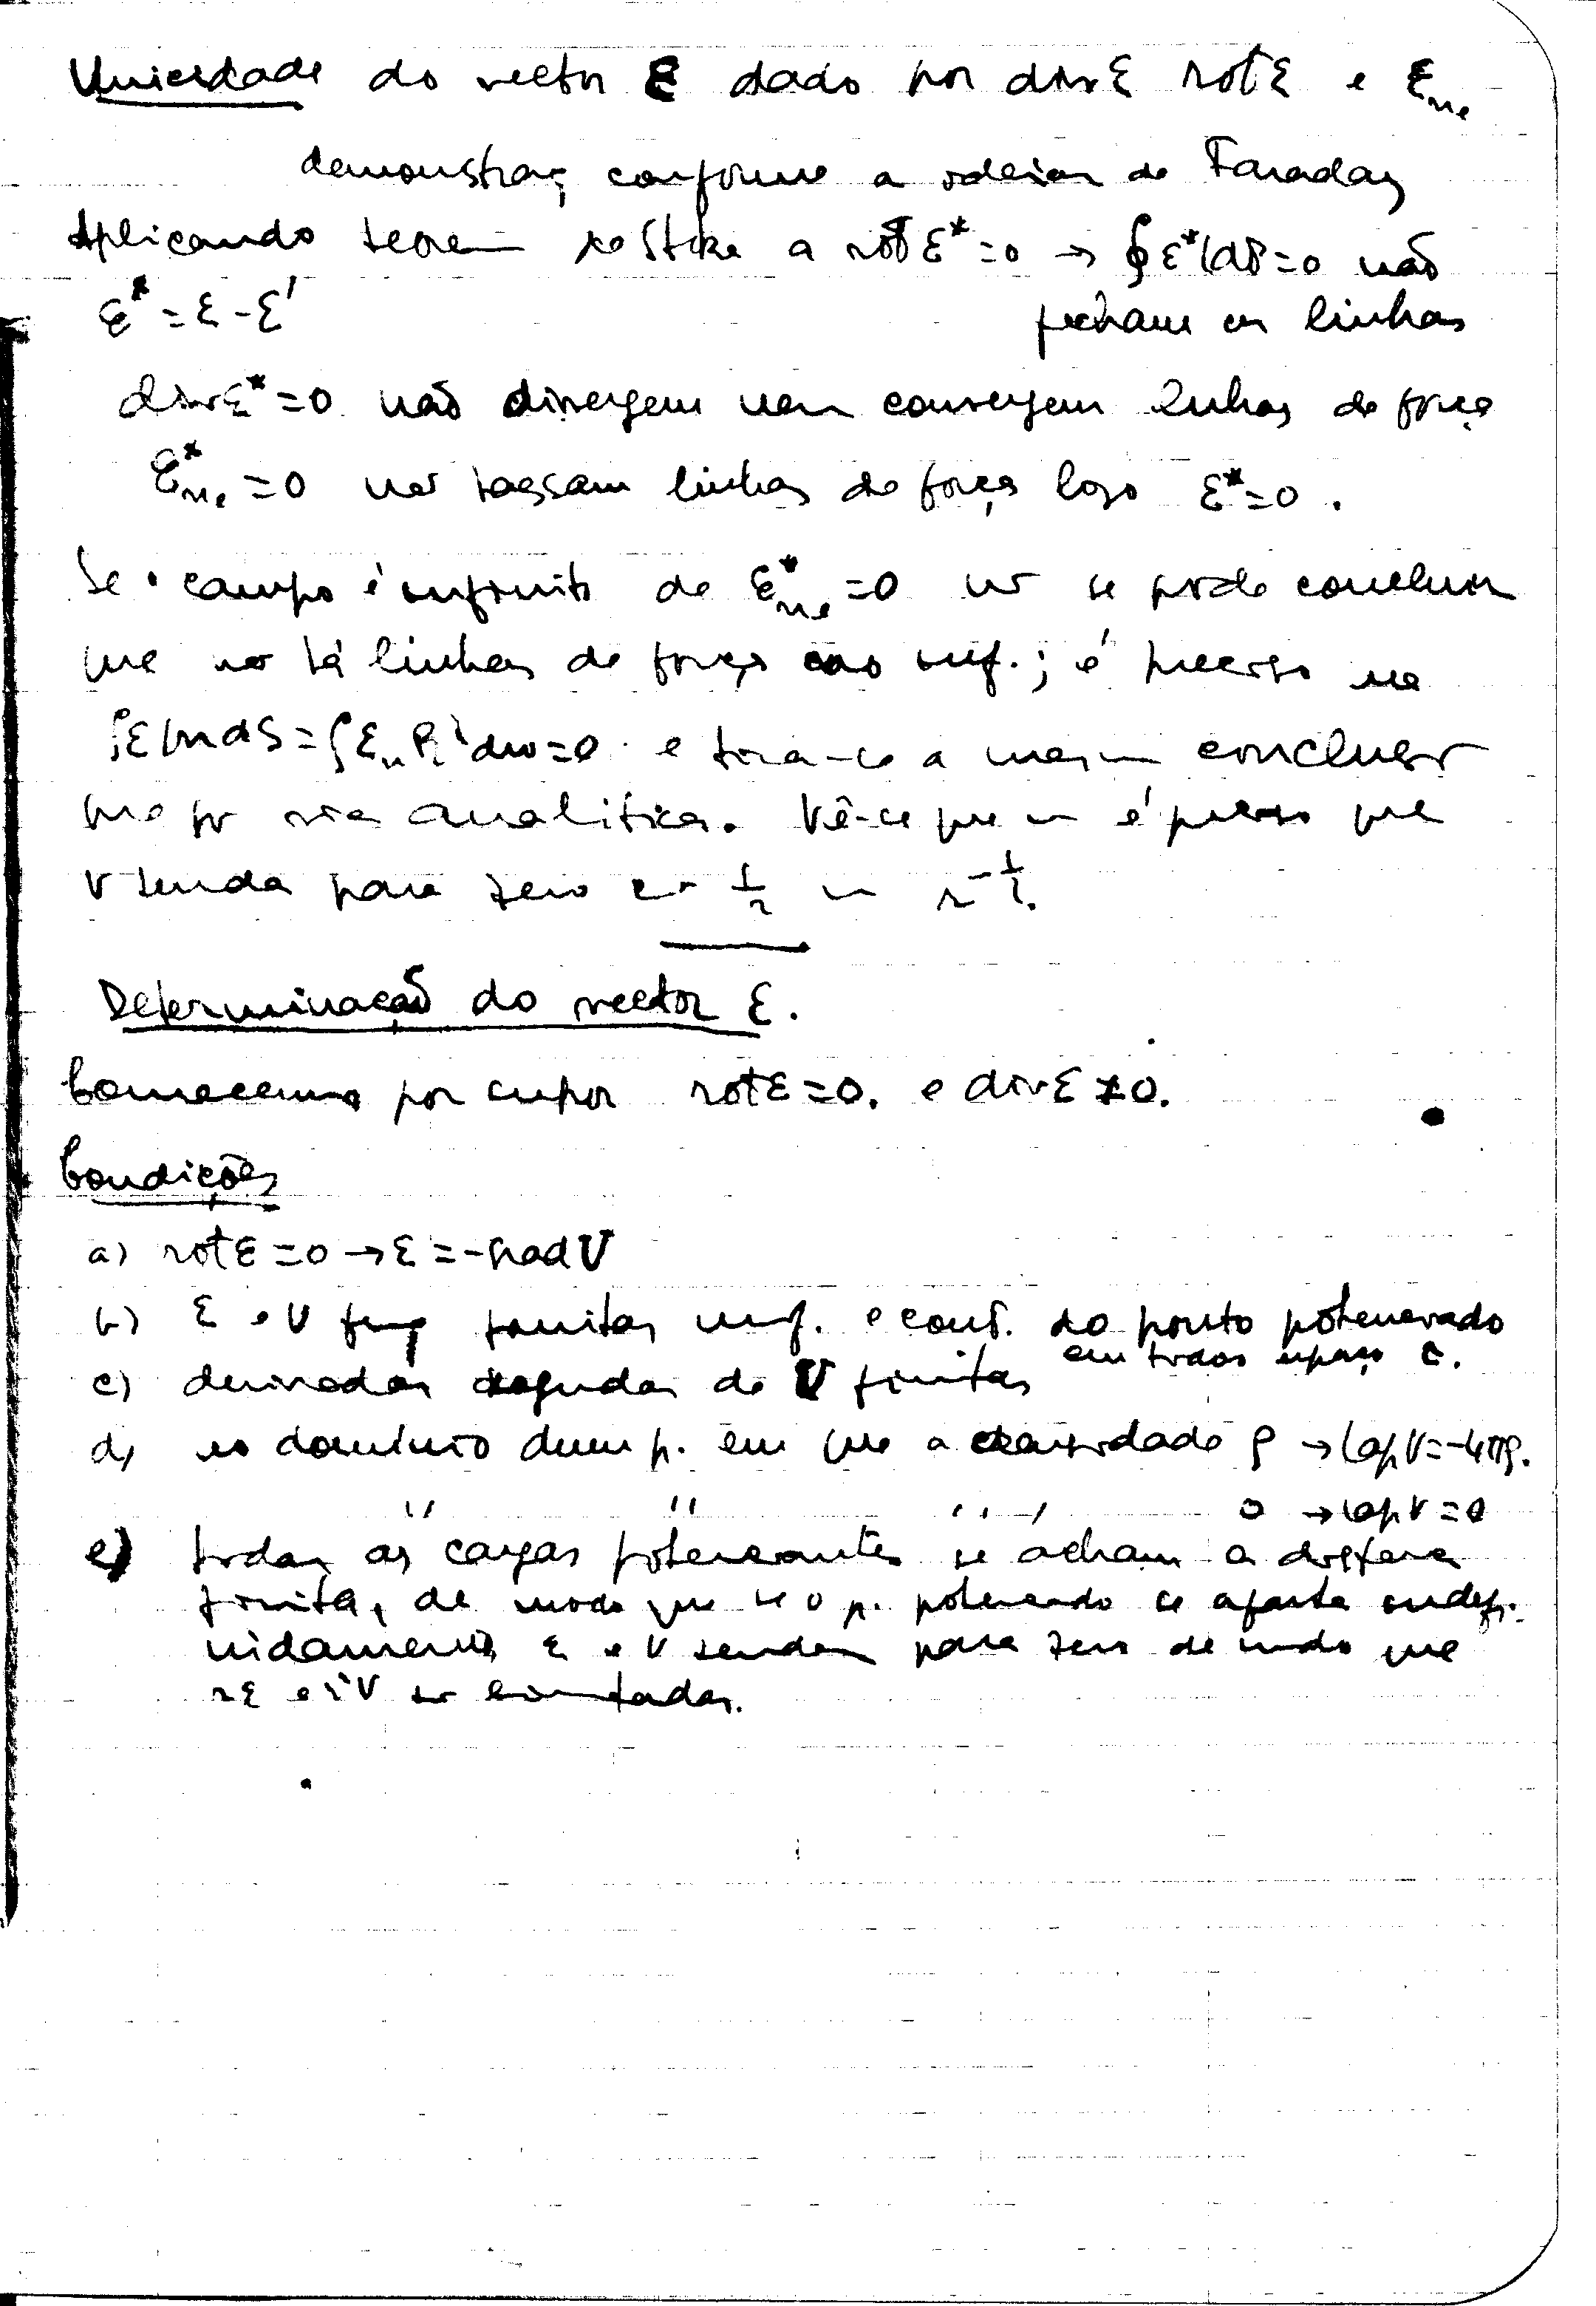 Unicidade do vector ε dado por div ε rot ε e ε_ne
demonstraç conforme a ideia de Faraday
Aplicando teorem de Stoke a rot ε* = 0 → ∮ ε*|dP = 0 não
ε* = ε - ε' fecham as linhas
div ε* = 0 não divergem nem convergem linhas de força
ε*_ne = 0 não passam linhas de força logo ε* = 0.
Se o campo é infinito de ε*_ne = 0 não se pode concluir
que não há linhas de força no inf.; é preciso que
∫ε|n dS = ∫ε_n R² dω = 0 e tira-se a mesm conclusão
que por via analitica. Vê-se que é preciso que
V tenda para zero c 1/r r^-1/2.
Determinação do vector ε.
Comecemos por supor rot ε = 0. e div ε ≠ 0.
Condições
a) rot ε = 0 → ε = -grad V
b) ε e V funç finitas unif. e cont. do ponto potenciado
em todos espaço
c) derivadas segundas de V finitas
d) no dominio dum p. em que a densidade ρ → lap V = -4πρ.
" " " 0 → lap V = 0
e) todas as cargas potenciantes se acham a distanc
finita, de modo que se o p. potenciado se afasta indefi-
nidamente ε e V tendem para zero de modo que
rε e r²V limitadas.